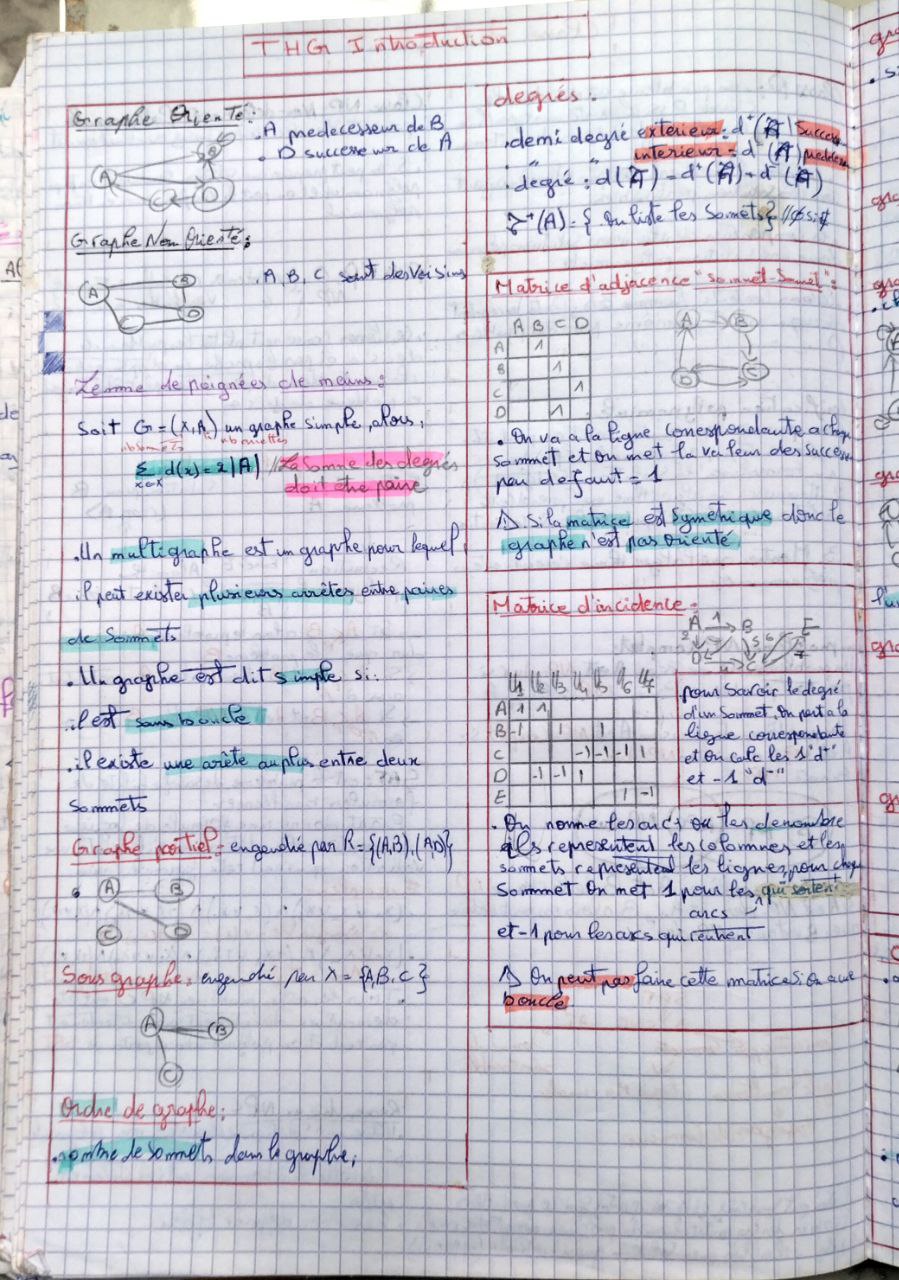 THG Introduction
Graphe Orienté:
. A predecesseur de B
. D successeur de A
A
B
C
D
Graphe Non Orienté:
. A, B, C sont des voisins
A
B
D
Lemme de poignées de mains:
Soit G = (X, A) un graphe simple, alors,
nb arrettes
∑ d(x) = 2|A| // La somme des degrés
x∈X
doit etre paire
. Un multigraphe est un graphe pour lequel
il peut exister plusieurs arrêtes entre paires
de sommets
. Un graphe est dit simple si:
. il est sans boucle
. il existe une arête au plus entre deux
sommets
Graphe partiel: engendré par R = {(A,B), (A,D)}
A B
C D
Sous graphe: engendré par X = {A, B, C}
A B
C
Ordre de graphe:
. nombre de sommets dans le graphe,
degrés:
. demi degré exterieur: d⁺(A) Success
" " interieur = d⁻(A)
. degré: d(A) = d⁺(A) + d⁻(A)
⁺(A) = { on liste les Somets } //
Matrice d'adjacence "sommet-Sommet":
A B C D
A 1
B 1
C 1
D 1
A B
D C
. On va a la ligne correspondante a
sommet et on met la valeur des success
par defaut = 1
⚠ Si la matrice est symetrique donc le
graphe n'est pas orienté
Matrice d'incidence:
A 1 B E
2 5 6
D C 7
4
U1 U2 U3 U4 U5 U6 U7
A 1 1
B -1 1 1
C -1 -1 -1 1
D -1 -1 1
E 1 -1
pour savoir le degré
d'un Sommet, On part a la
ligne correspondante
et On calc les 1 "d⁺"
et -1 "d⁻"
. On nomme les arcs ou les denombre
ils representent les colomnes et les
sommets representent les lignes, pour
Sommet On met 1 pour les qui sortent
arcs
et -1 pour les arcs qui rentrent
⚠ On peut pas faire cette matrice si on a une
boucle